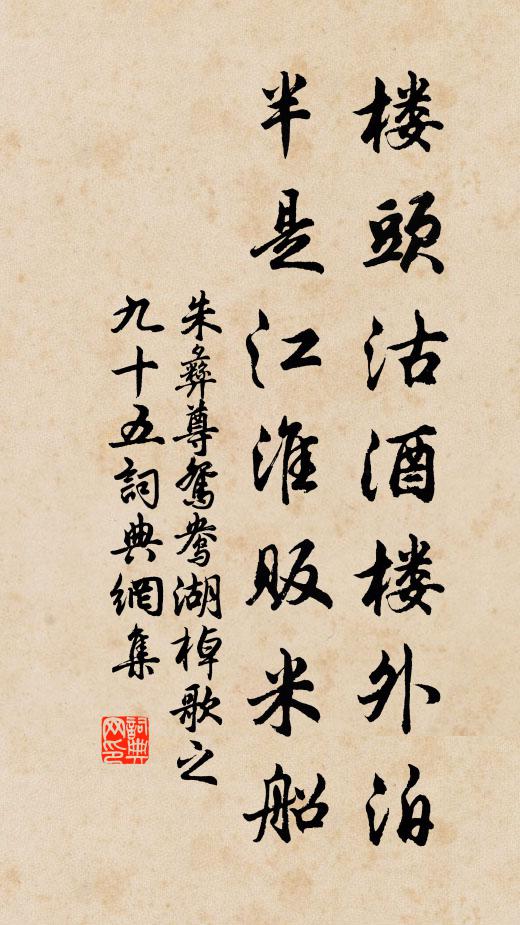 楼頭沽酒楼外泊
半是江淮販米船
朱彝尊鴛鴦湖棹歌之
九十五詞典網集
詞典
网印